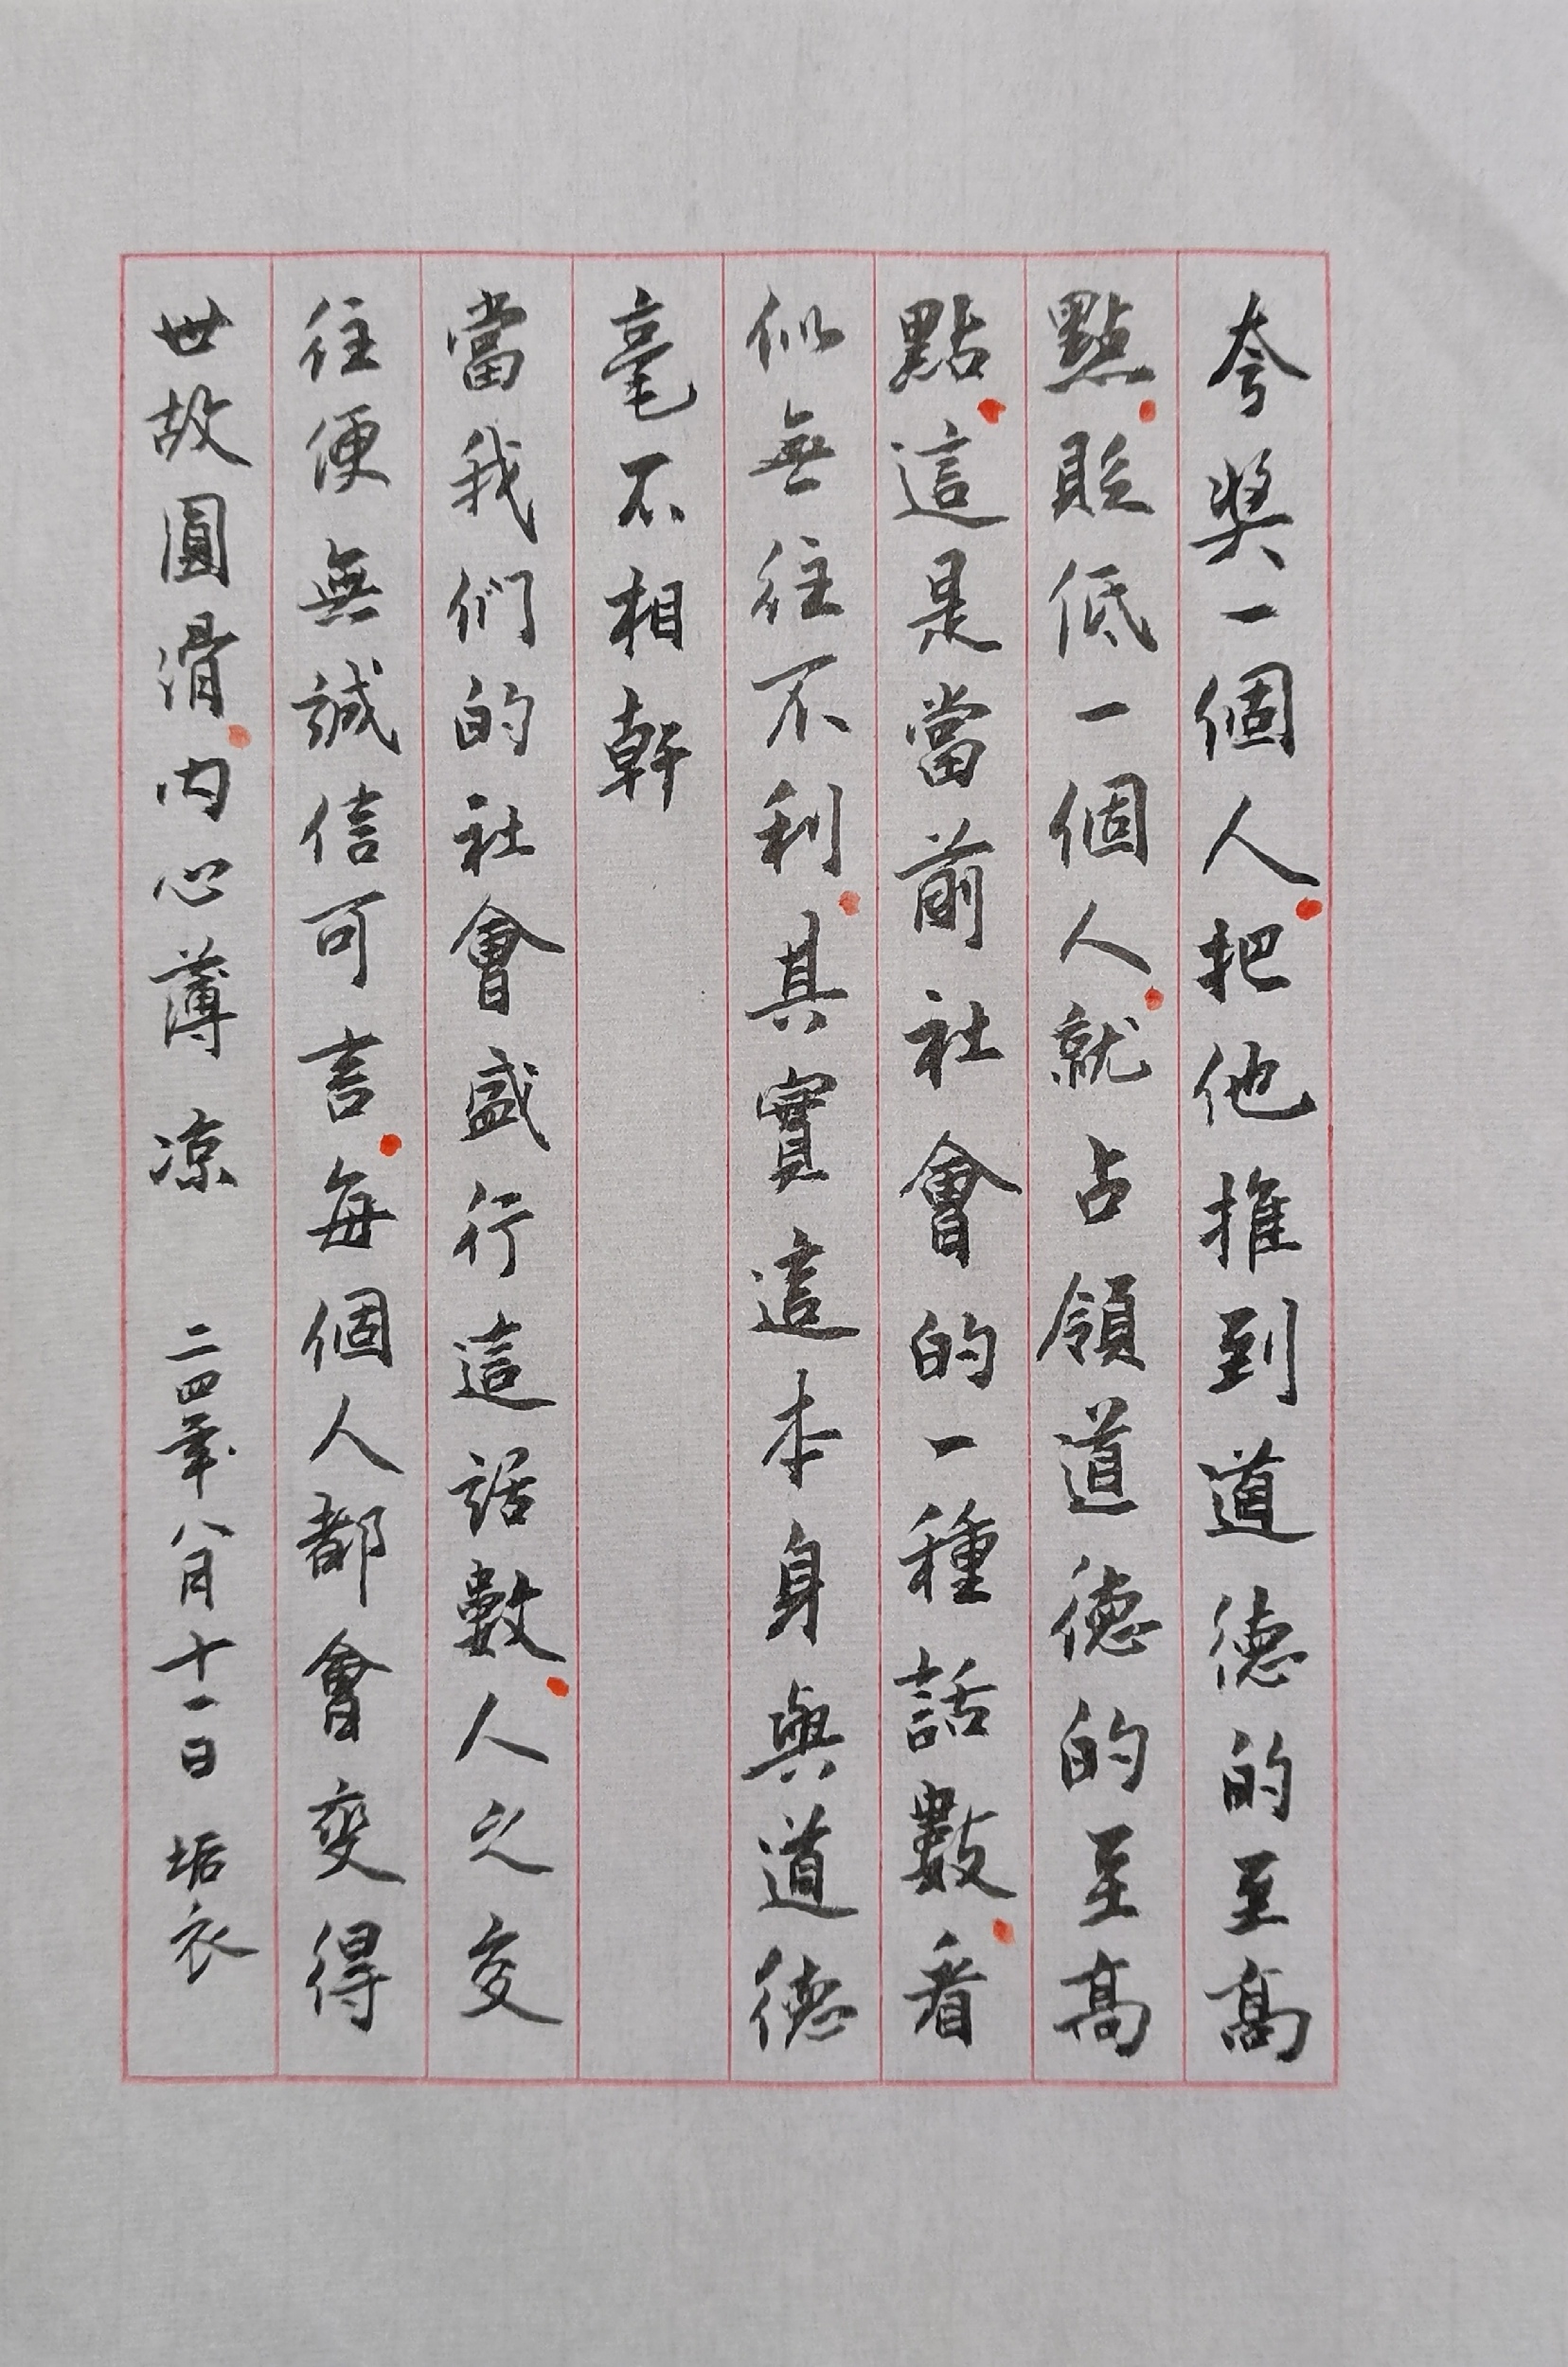 夸奖一個人把他推到道德的至高
點貶低一個人就占領道德的至高
點這是當前社會的一種話數看
似無往不利其實這本身與道德
毫不相幹
當我們的社會盛行這話數人之交
往便無誠信可言每個人都會變得
世故圓滑内心薄凉 二四年八月十一日 垢衣